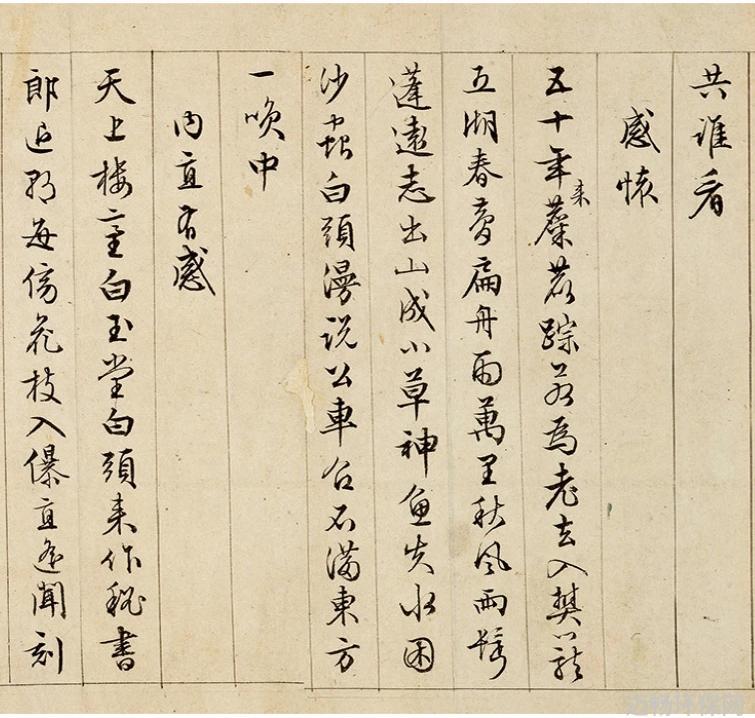 共誰看
感懷
五十年来麋鹿踪若為老去入樊籠
五湖春夢扁舟雨萬里秋風兩鬢
蓬遠志出山成小草神魚失水困
沙蟲白頭漫說公車召不滿東方
一咲中
內直有感
天上樓臺白玉堂白頭来作秘書
郎退朝每傍花枝入儤直遙聞刻